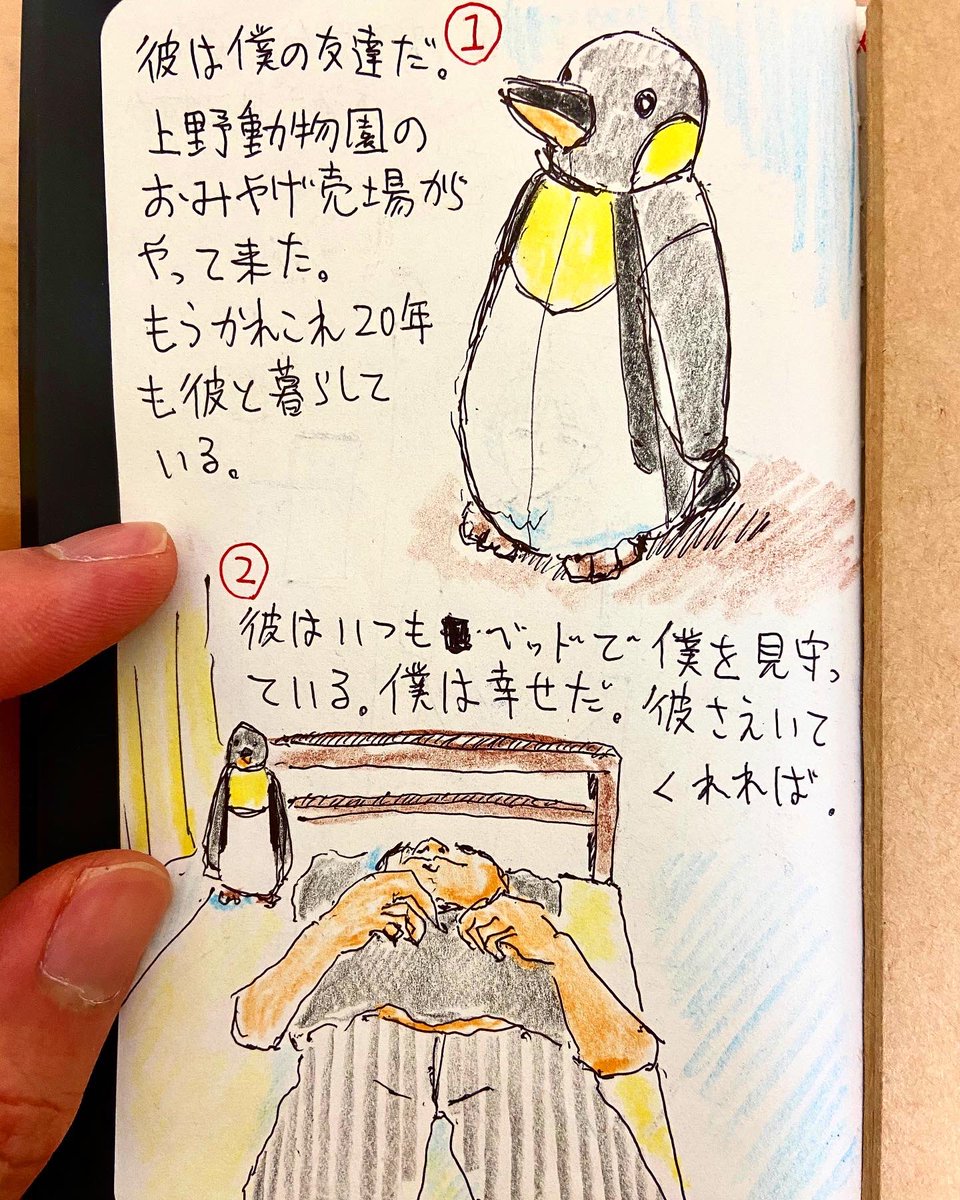 ①
彼は僕の友達だ。
上野動物園の
おみやげ売場から
やって来た。
もうかれこれ20年
も彼と暮らして
いる。
②
彼はいつもベッドで僕を見守っ
ている。僕は幸せだ。彼さえいて
くれれば。